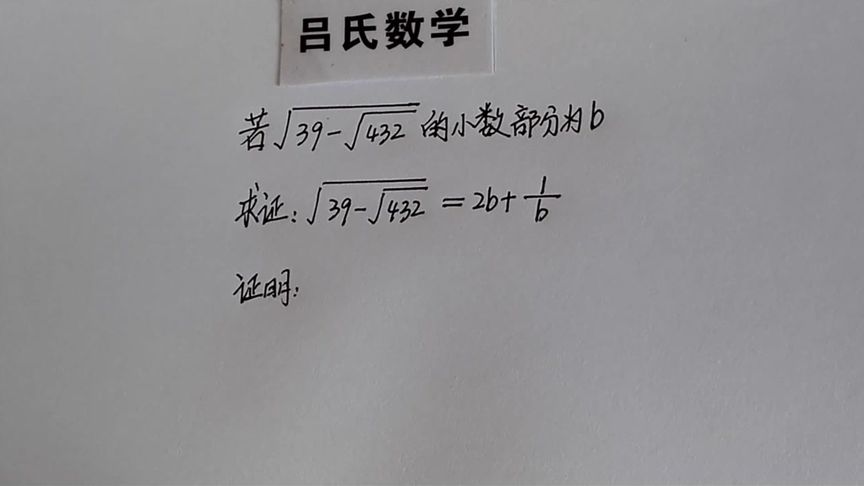 吕氏数学
若√(39-√432) 的小数部分为b
求证:√(39-√432) = 2b+1/b
证明: